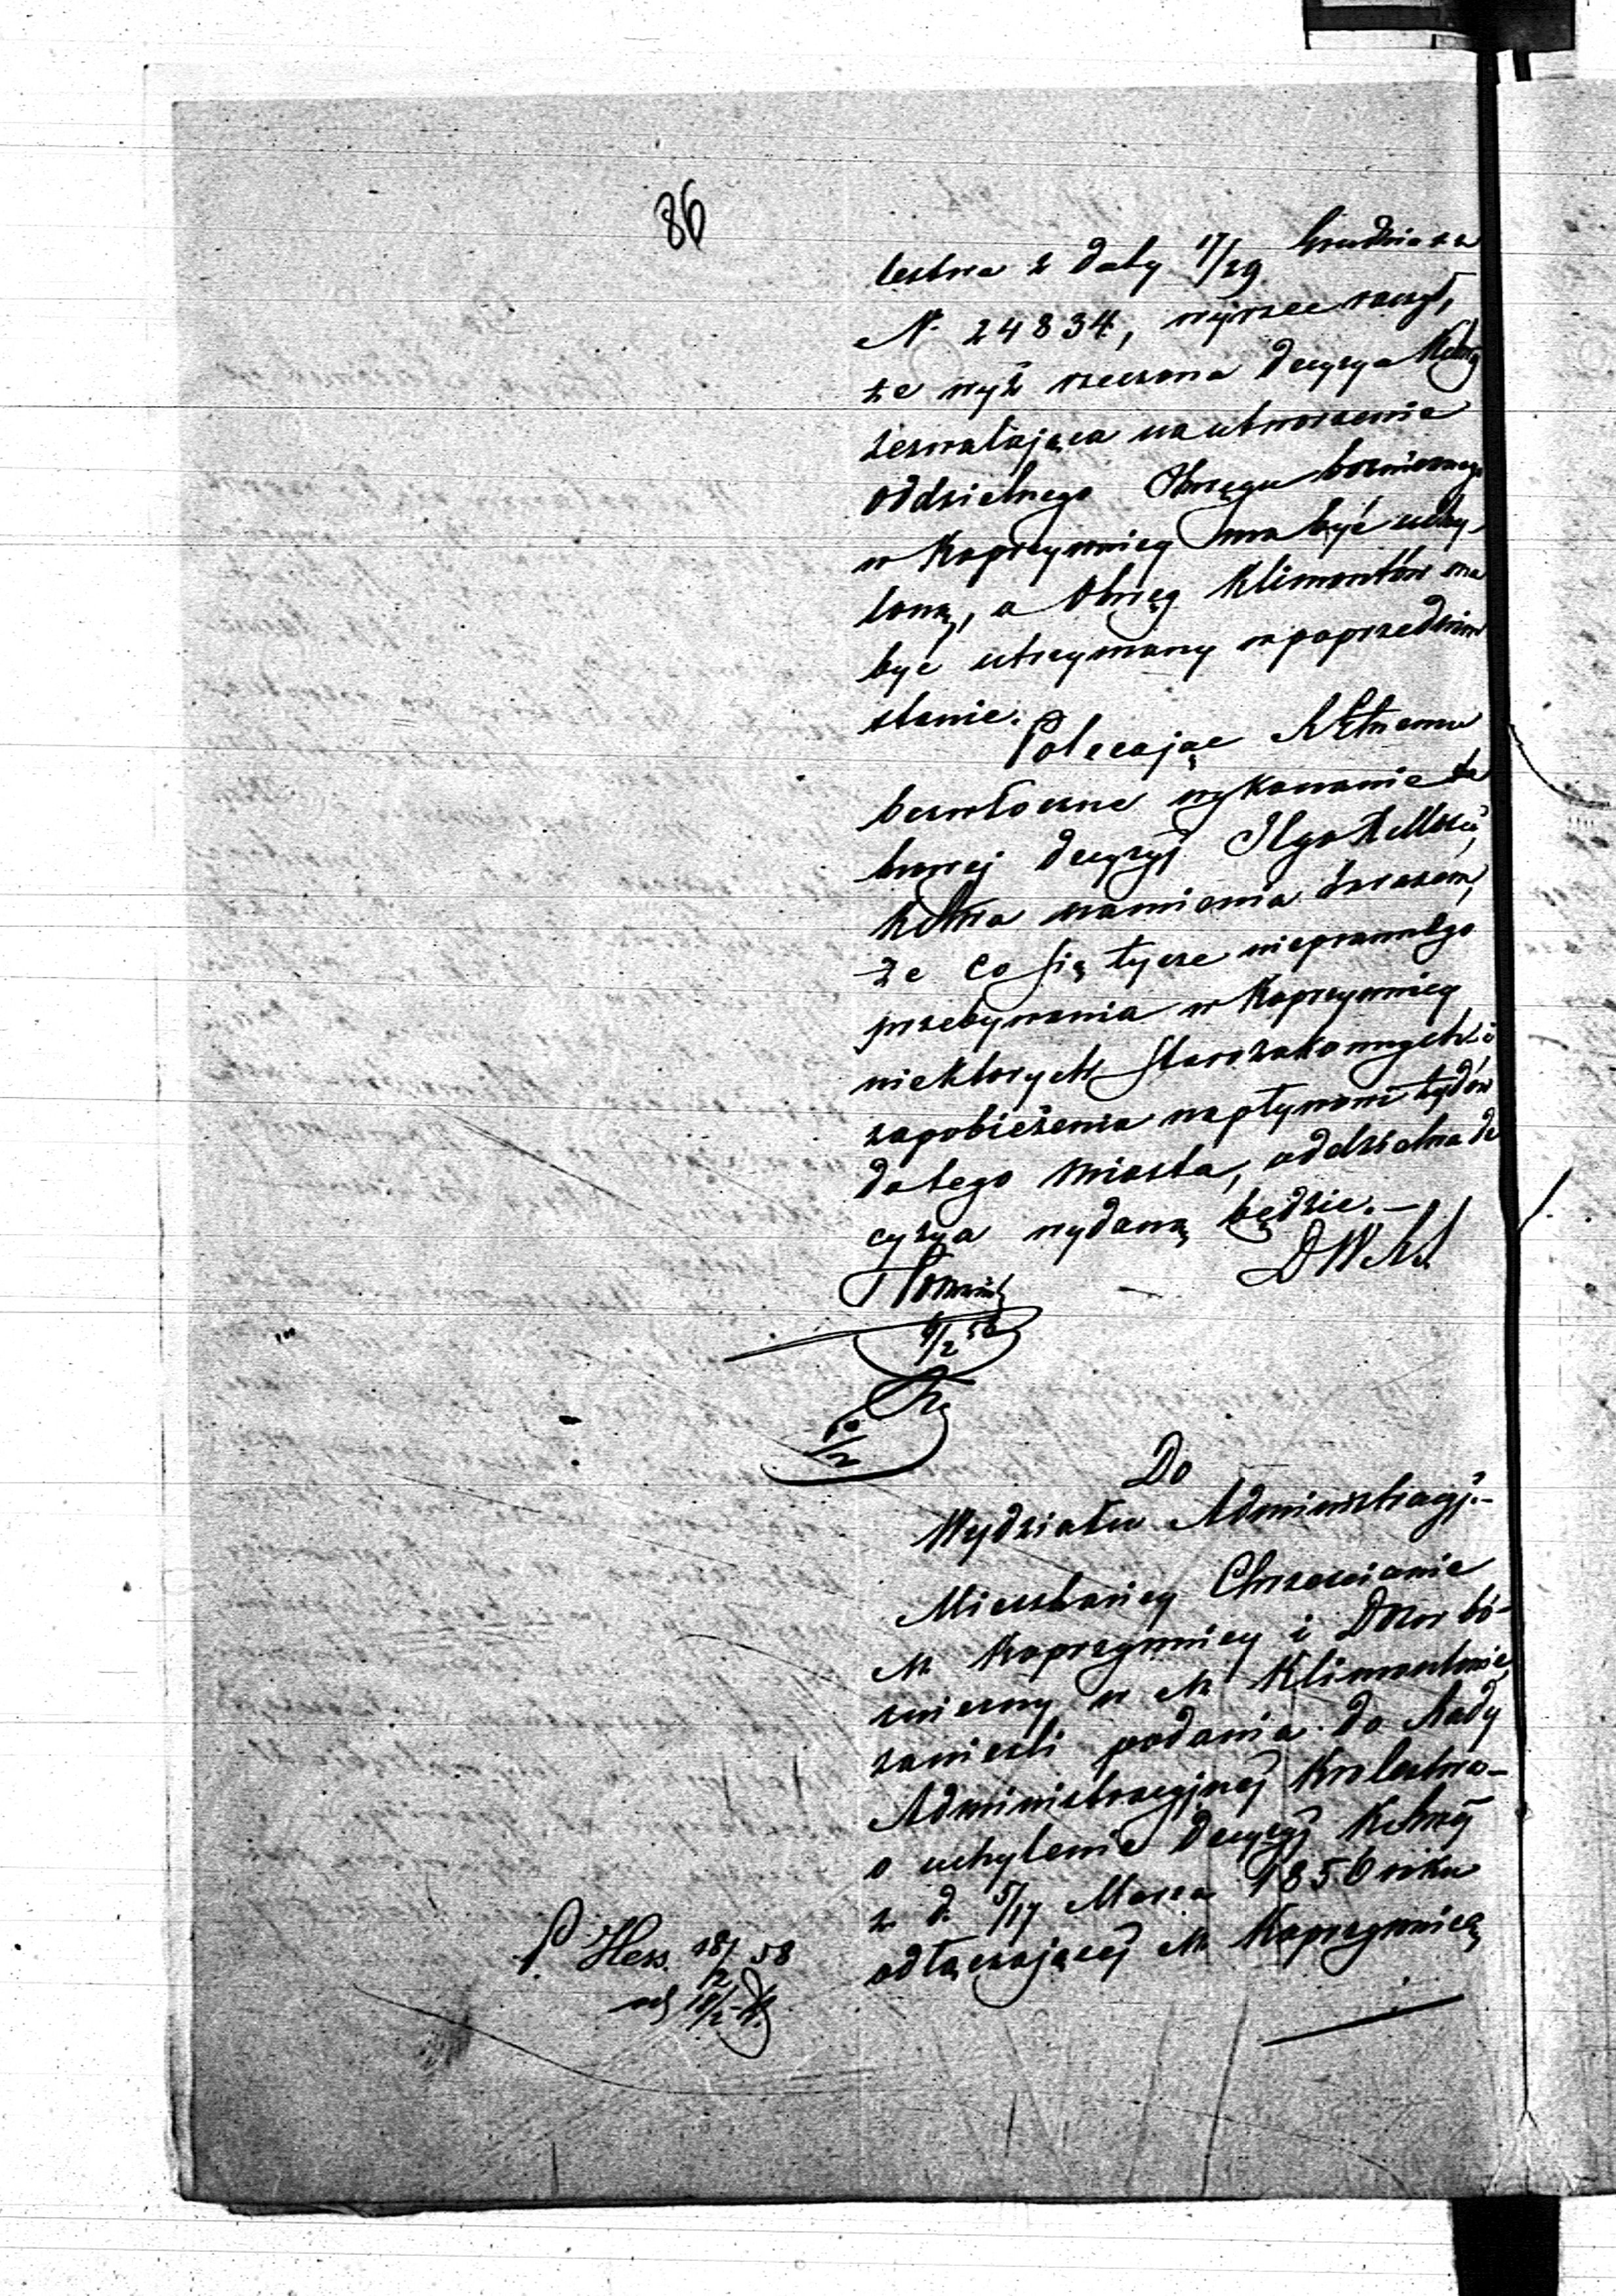 86
lestwa z daty 17/29 Grudnia r z
N. 24834, wyrzec raczył,
że wyż rzeczona decyzya Kcbrz
zezwalająca na utworzenie
oddzielnego Okręgu bożniczego
w Koprzywnicy ma być uchy-
loną, a Okręg Klimontów ma
być utrzymany w poprzednim
stanie.
Polecając
bezwłoczne wykonanie ta
kowej decyzyi
namienia zarazem,
że co się tycze nieprawnego
przebywania w Koprzywnicy
niektorych Starozakonnych i
zapobieżenia napływowi żydów
do tego miasta, oddzielna de
cyzya wydaną będzie.–
DW
9/2 58
10/2
Do
Wydziału Administracyj.–
Mieszkańcy Chrześcianie
M. Koprzywnicy i Dozor bó-
żniczny w M. Klimontowie
zanieśli podania do Rady
Administracyjnej Krolestwa–
o uchylenie decyzyi
z d. 5/17 Marca 1856 roku
odłączającej M. Koprzywnicę
P. Hess. 18/2 58